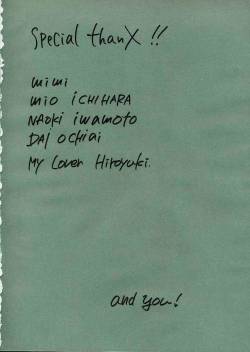 Special thanX !!
mimi
mio ICHIHARA
NAOKi iwamoto
DAI OCHiAi
MY Lover Hiroyuki.
and you!